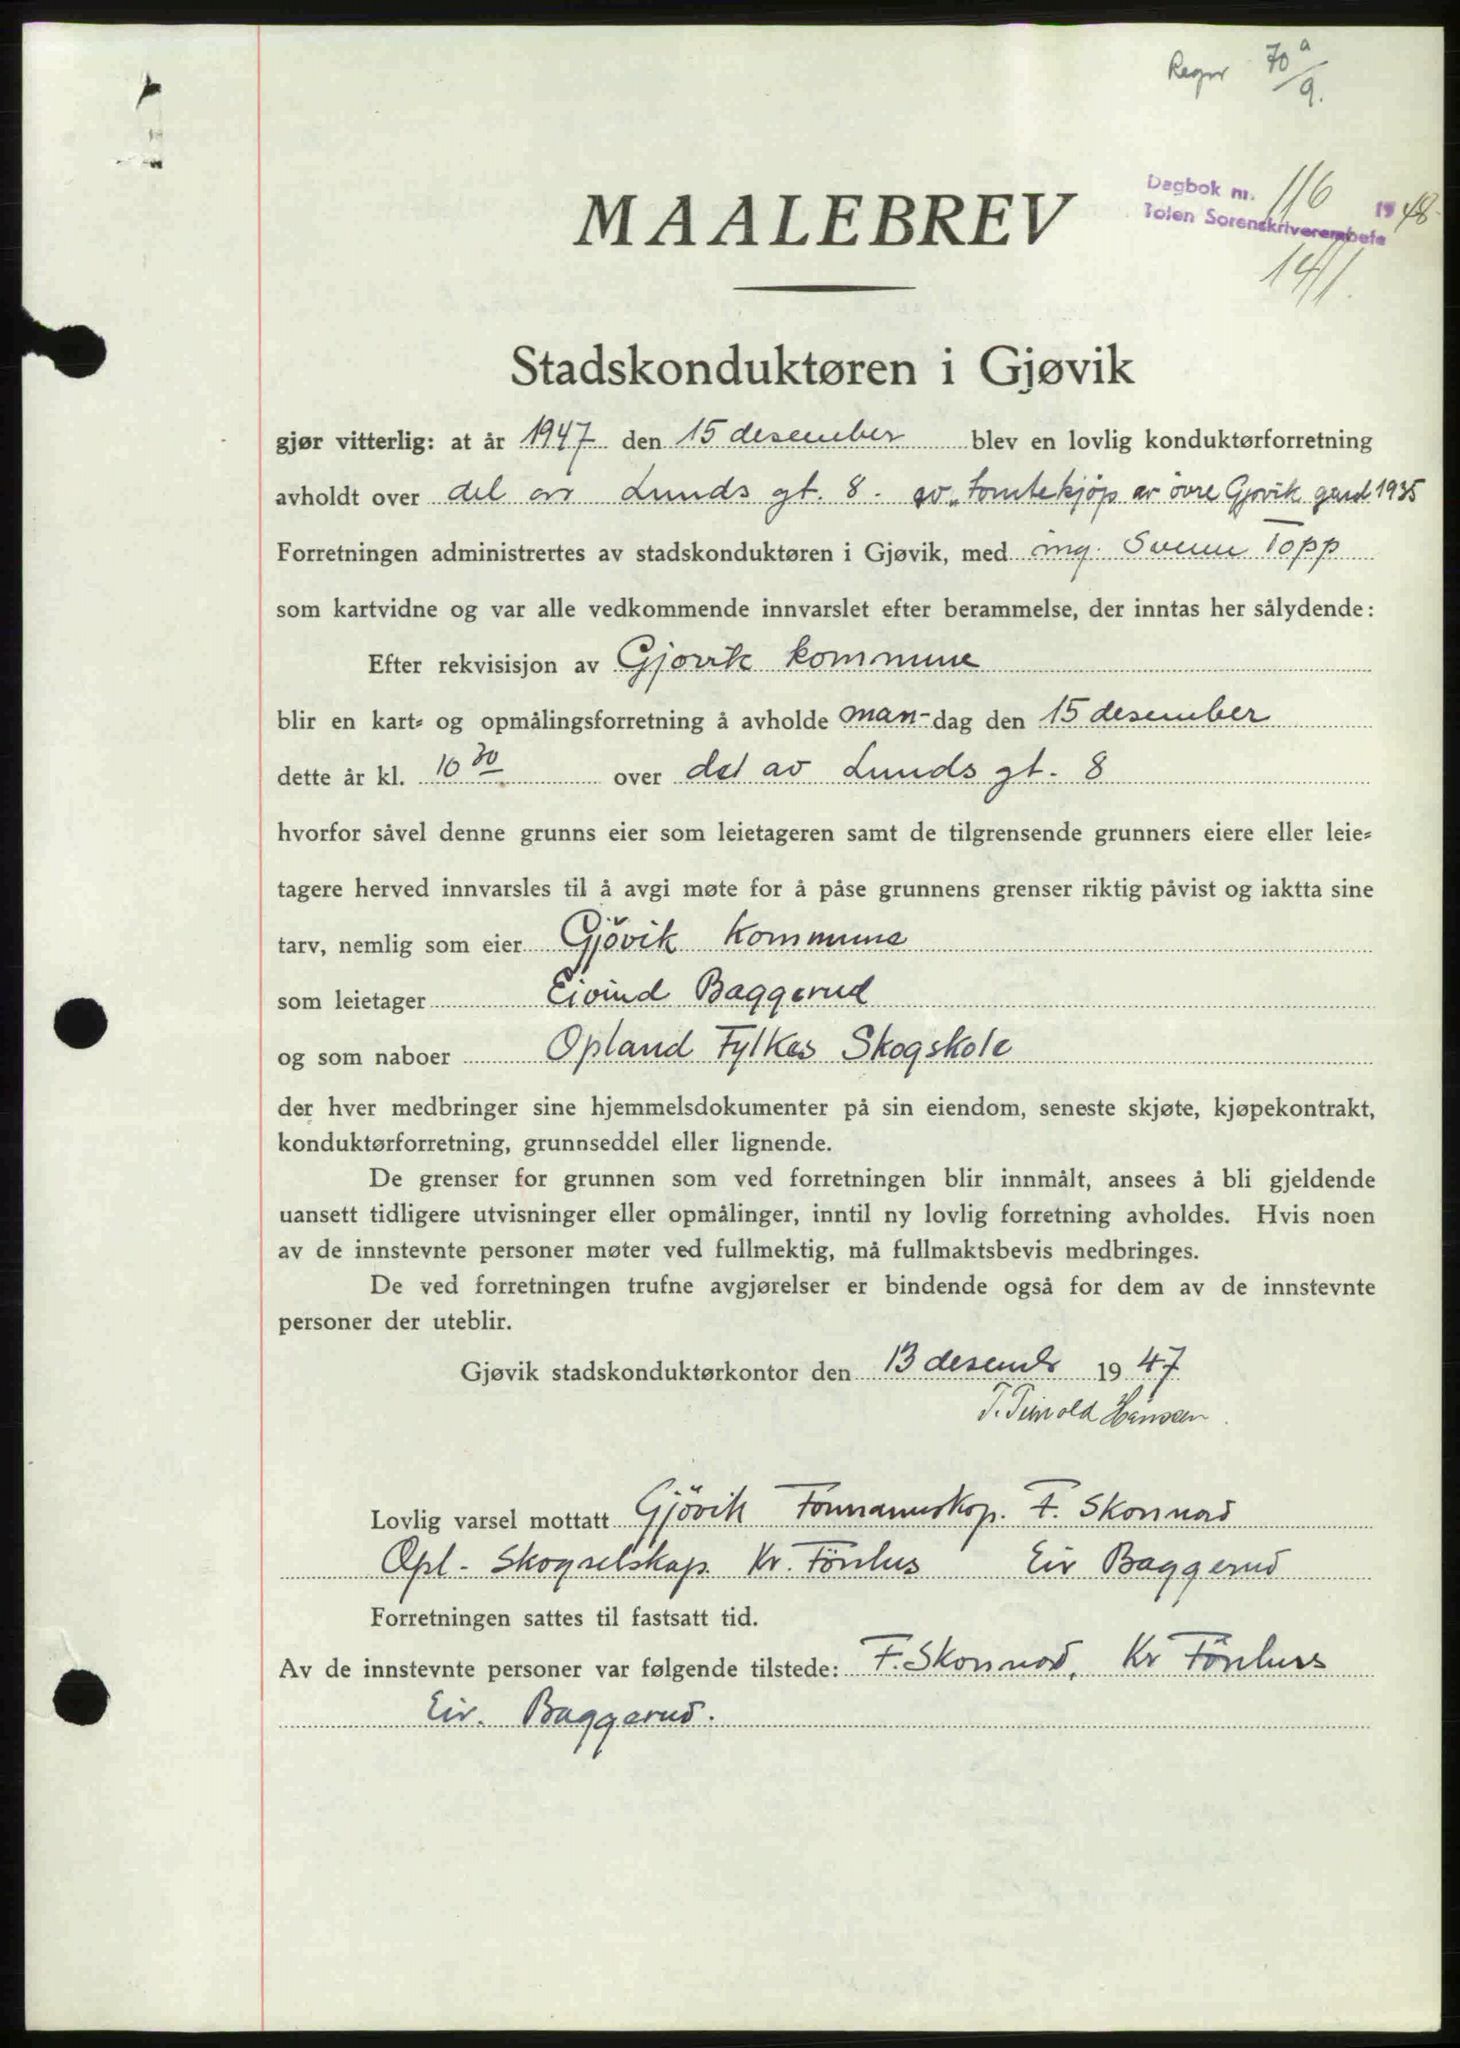 Regnr 70a/9.
Dagbok nr. 116 1948.
Toten Sorenskriverembete
14/1.
MAALEBREV
Stadskonduktøren i Gjøvik
gjør vitterlig: at år 1947 den 15 desember blev en lovlig konduktørforretning
avholdt over del av Lunds gt. 8. av „tomtekjøp av övre Gjøvik gård 1935
Forretningen administrertes av stadskonduktøren i Gjøvik, med ing. Svenn Topp
som kartvidne og var alle vedkommende innvarslet efter berammelse, der inntas her sålydende:
Efter rekvisisjon av Gjøvik kommune
blir en kart- og opmålingsforretning å avholde man-dag den 15 desember
dette år kl. 10 30 over del av Lunds gt. 8
hvorfor såvel denne grunns eier som leietageren samt de tilgrensende grunners eiere eller leie-
tagere herved innvarsles til å avgi møte for å påse grunnens grenser riktig påvist og iaktta sine
tarv, nemlig som eier Gjövik Kommune
som leietager Eivind Baggerud
og som naboer Opland Fylkes Skogskole
der hver medbringer sine hjemmelsdokumenter på sin eiendom, seneste skjøte, kjøpekontrakt,
konduktørforretning, grunnseddel eller lignende.
De grenser for grunnen som ved forretningen blir innmålt, ansees å bli gjeldende
uansett tidligere utvisninger eller opmålinger, inntil ny lovlig forretning avholdes. Hvis noen
av de innstevnte personer møter ved fullmektig, må fullmaktsbevis medbringes.
De ved forretningen trufne avgjørelser er bindende også for dem av de innstevnte
personer der uteblir.
Gjøvik stadskonduktørkontor den 13 desembr 1947
Hansen
Lovlig varsel mottatt Gjövik Formannskap. F. Skonnord
Opl. Skogselskap. Kr. Fönhus Eiv Baggerud
Forretningen sattes til fastsatt tid.
Av de innstevnte personer var følgende tilstede: F. Skonnord, Kr Fönhus
Eiv. Baggerud.